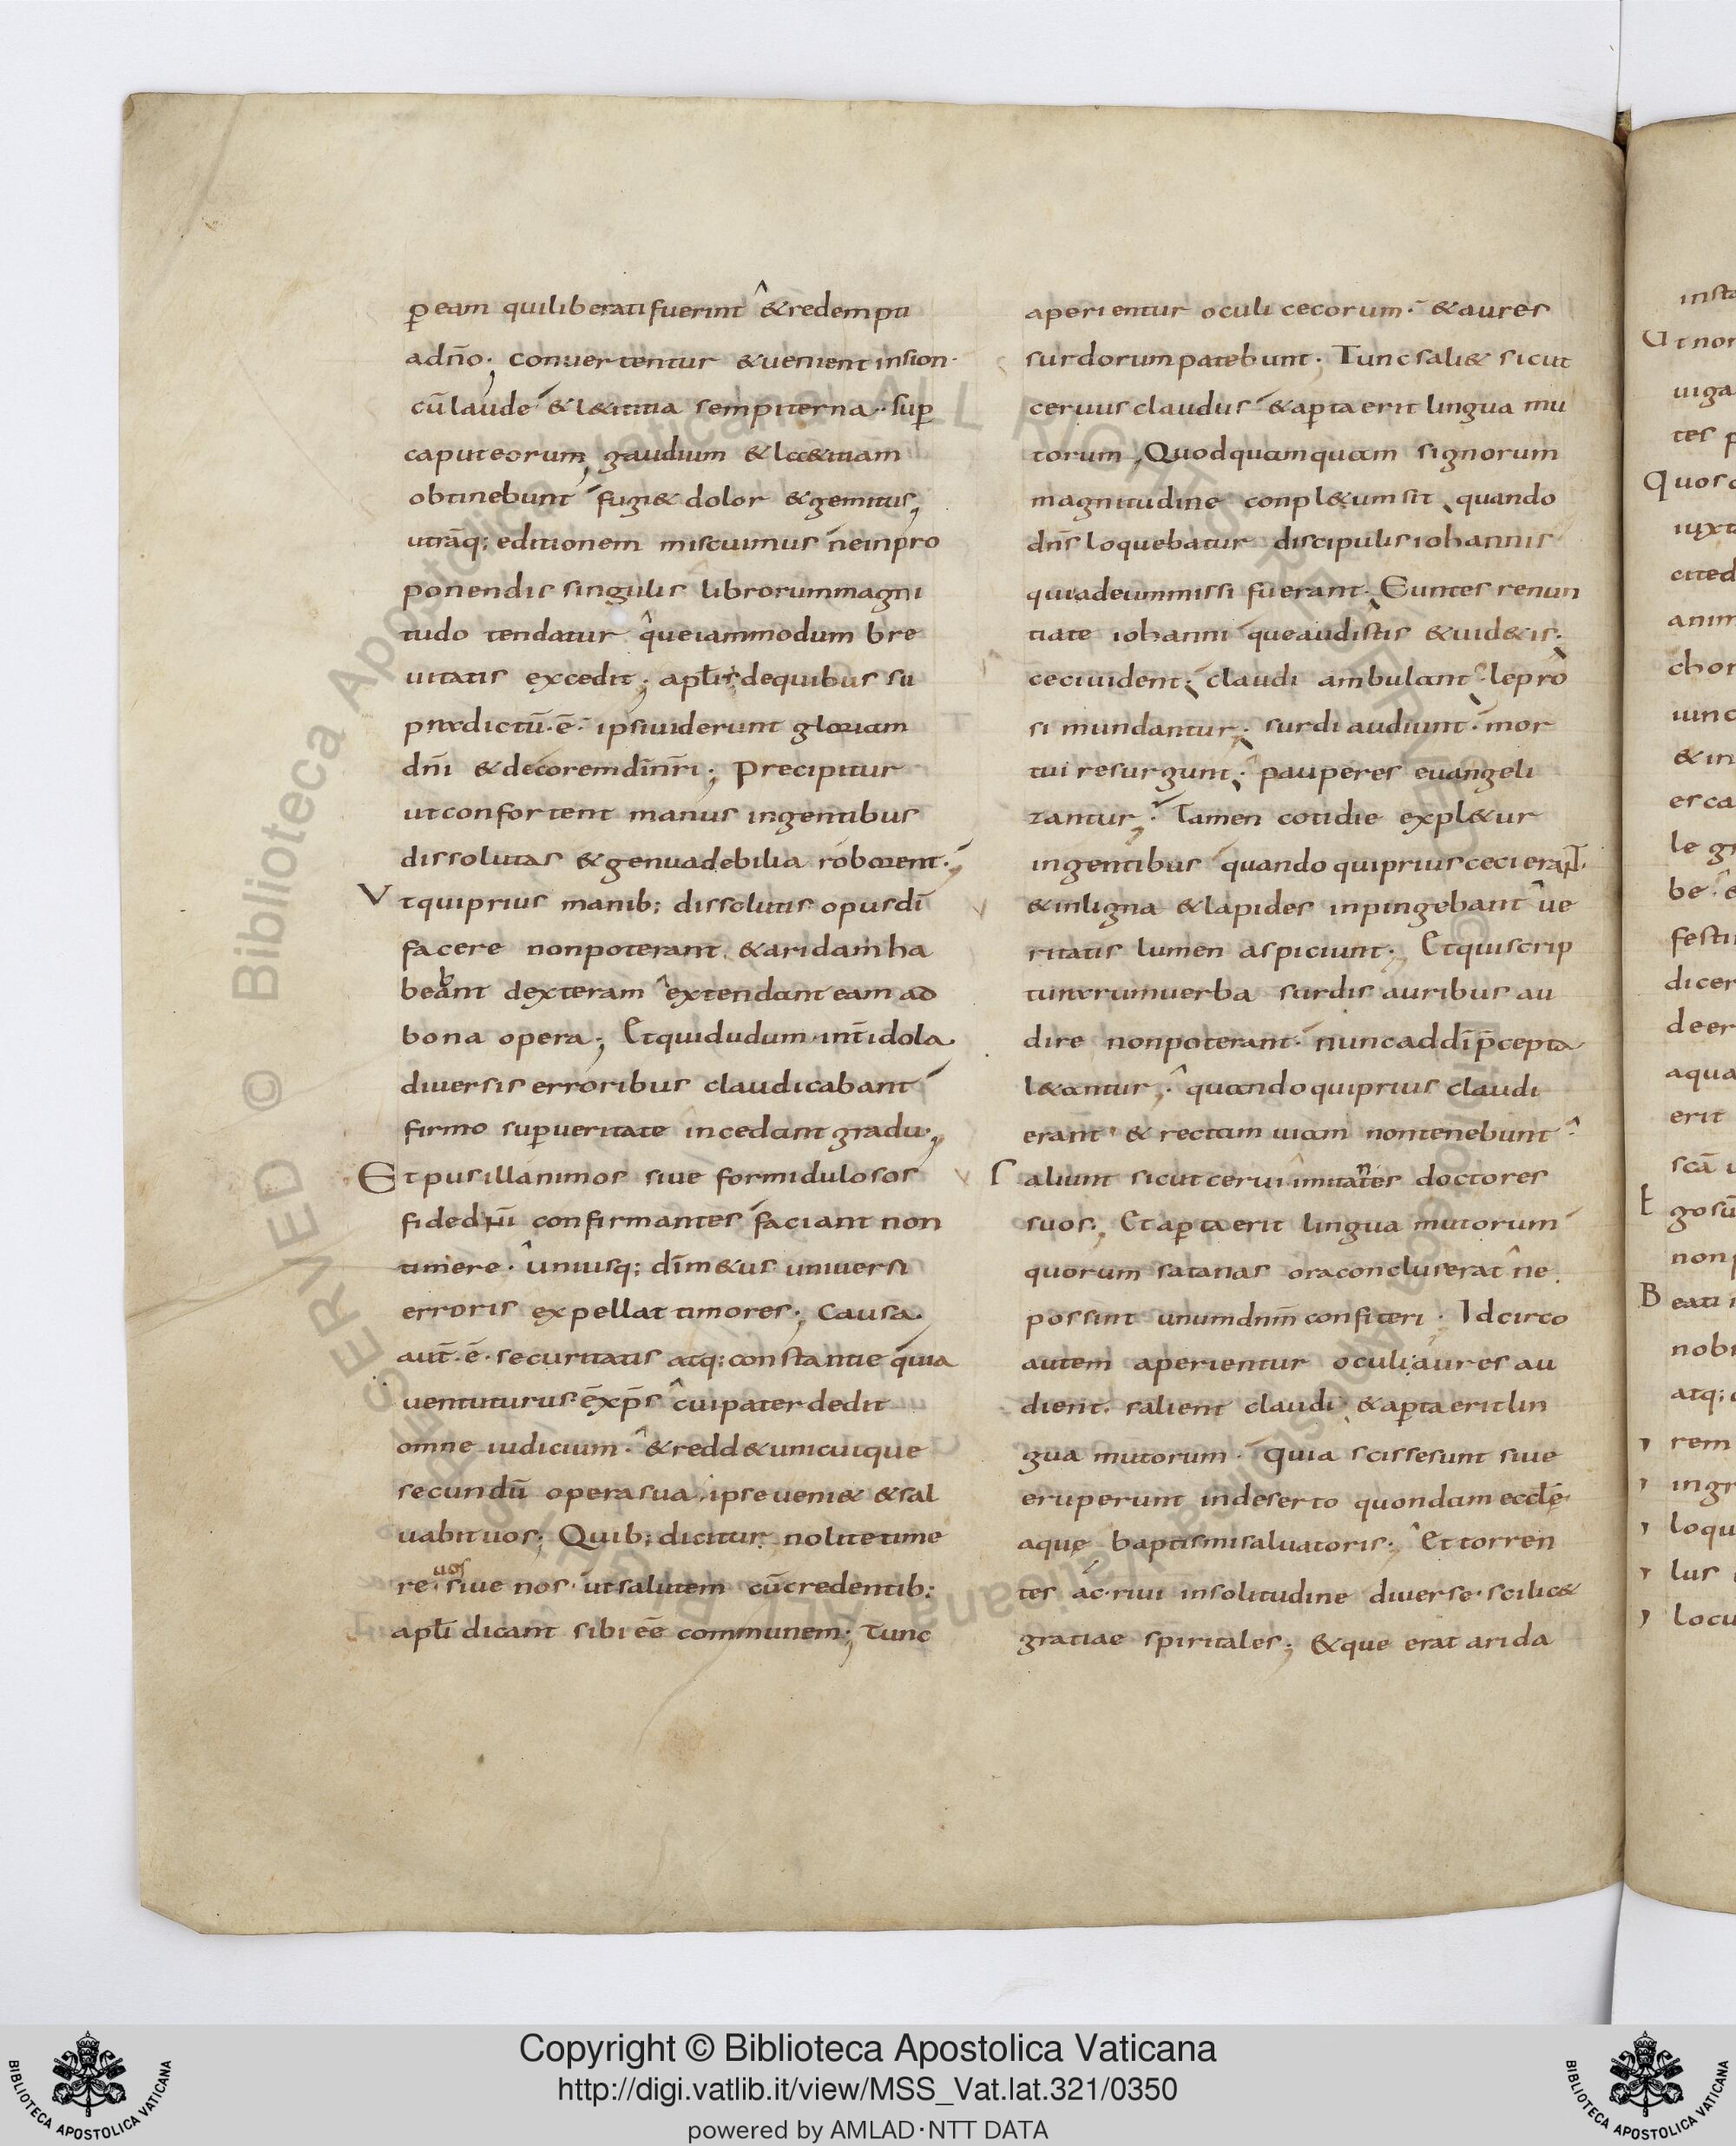 p̱eam quiliberatifuerint &redempti
adño. Conuertentur &uenient insion.
cūlaude &l&itia sempiterna. sup̱
caputeorum, gaudium &l&itiam
obtinebunt fugi& dolor &gemitus,
utrāq; editionem miscuimus neinpro
ponendis singulis librorummagni
tudo tendatur queiammodum bre
uitatis excedit; apłis dequibus su
prædictū.ē. ipsiuiderunt gloriam
dñi &decoremdīnr̄i; Precipitur
utconfortent manus ingentibus
dissolutas &genuadebilia roborent.,
Vtquiprius manib; dissolutis opusdī
facere nonpoterant, &aridamha
beant dexteram extendant eam ad
bona opera; Etquidudum int̄idola
diuersis erroribus claudicabant
firmo sup̱ueritate incedant gradu.,
Etpusillanimos siue formidulosos
fided̄ni confirmantes faciant non
timere. Uniusq; dīm&us uniuersi
erroris expellat timores; Causa.
aut̄.ē. securitatis atq; constantie quia
uentuturus ēxp̄s cuipaterdedit
omne iudicium. &redd&unicuique
secundū operasua. ipseueni& &sal
uabituos; Quib; dicitur, nolitetime
re. siue uos nos. utsalutem cūcredentib;
apłi dicant sibi eē communem; Tunc
aperientur oculi cecorum. &aures
surdorumpatebunt. Tuncsali& sicut
ceruusclaudus &ap̱taerit lingua mu
torum, Quodquamquam signorum
magnitudine conpl&umsit quando
dn̄s loquebatur discipulisiohannis
quiadeummissi fuerant. Euntes renun
tiate iohanni queaudistis &uid&is.
ceciuident. claudi ambulant lepro
si mundantur. surdi audiunt. mor
tui resurgunt. pauperes euangeli
zantur, Tamen cotidie expl&ur
ingentibus quando quipriusceci erant.
&inligna &lapides inpingebant ue
ritatis lumen aspiciunt; Etquiscrip
turarumuerba surdis auribus au
dire nonpoterant. nuncaddīp̄cepta
l&antur, quandoquiprius claudi
erant & rectam uiam nontenebunt
Saliunt sicut cerui imitantes doctores
suos; Etap̱taerit lingua mutorum
quorum satanas oraconcluserat ne
possint unumdnm̄ confiteri. Idcirco
autem aperientur oculi,aures au
dient. salient claudi &ap̱taeritlin
gua mutorum. quia scissesunt siue
eruperunt indeserto quondam ecclę
aquę baptismisaluatoris; Et torren
tes ac riui insolitudine diuerse. scilic&
gratiae spiritales; &que erat arida
Copyright © Biblioteca Apostolica Vaticana
http://digi.vatlib.it/view/MSS_Vat.lat.321/0350
powered by AMLAD·NTT DATA
BIBLIOTECA APOSTOLICA VATICANA
BIBLIOTECA APOSTOLICA VATICANA